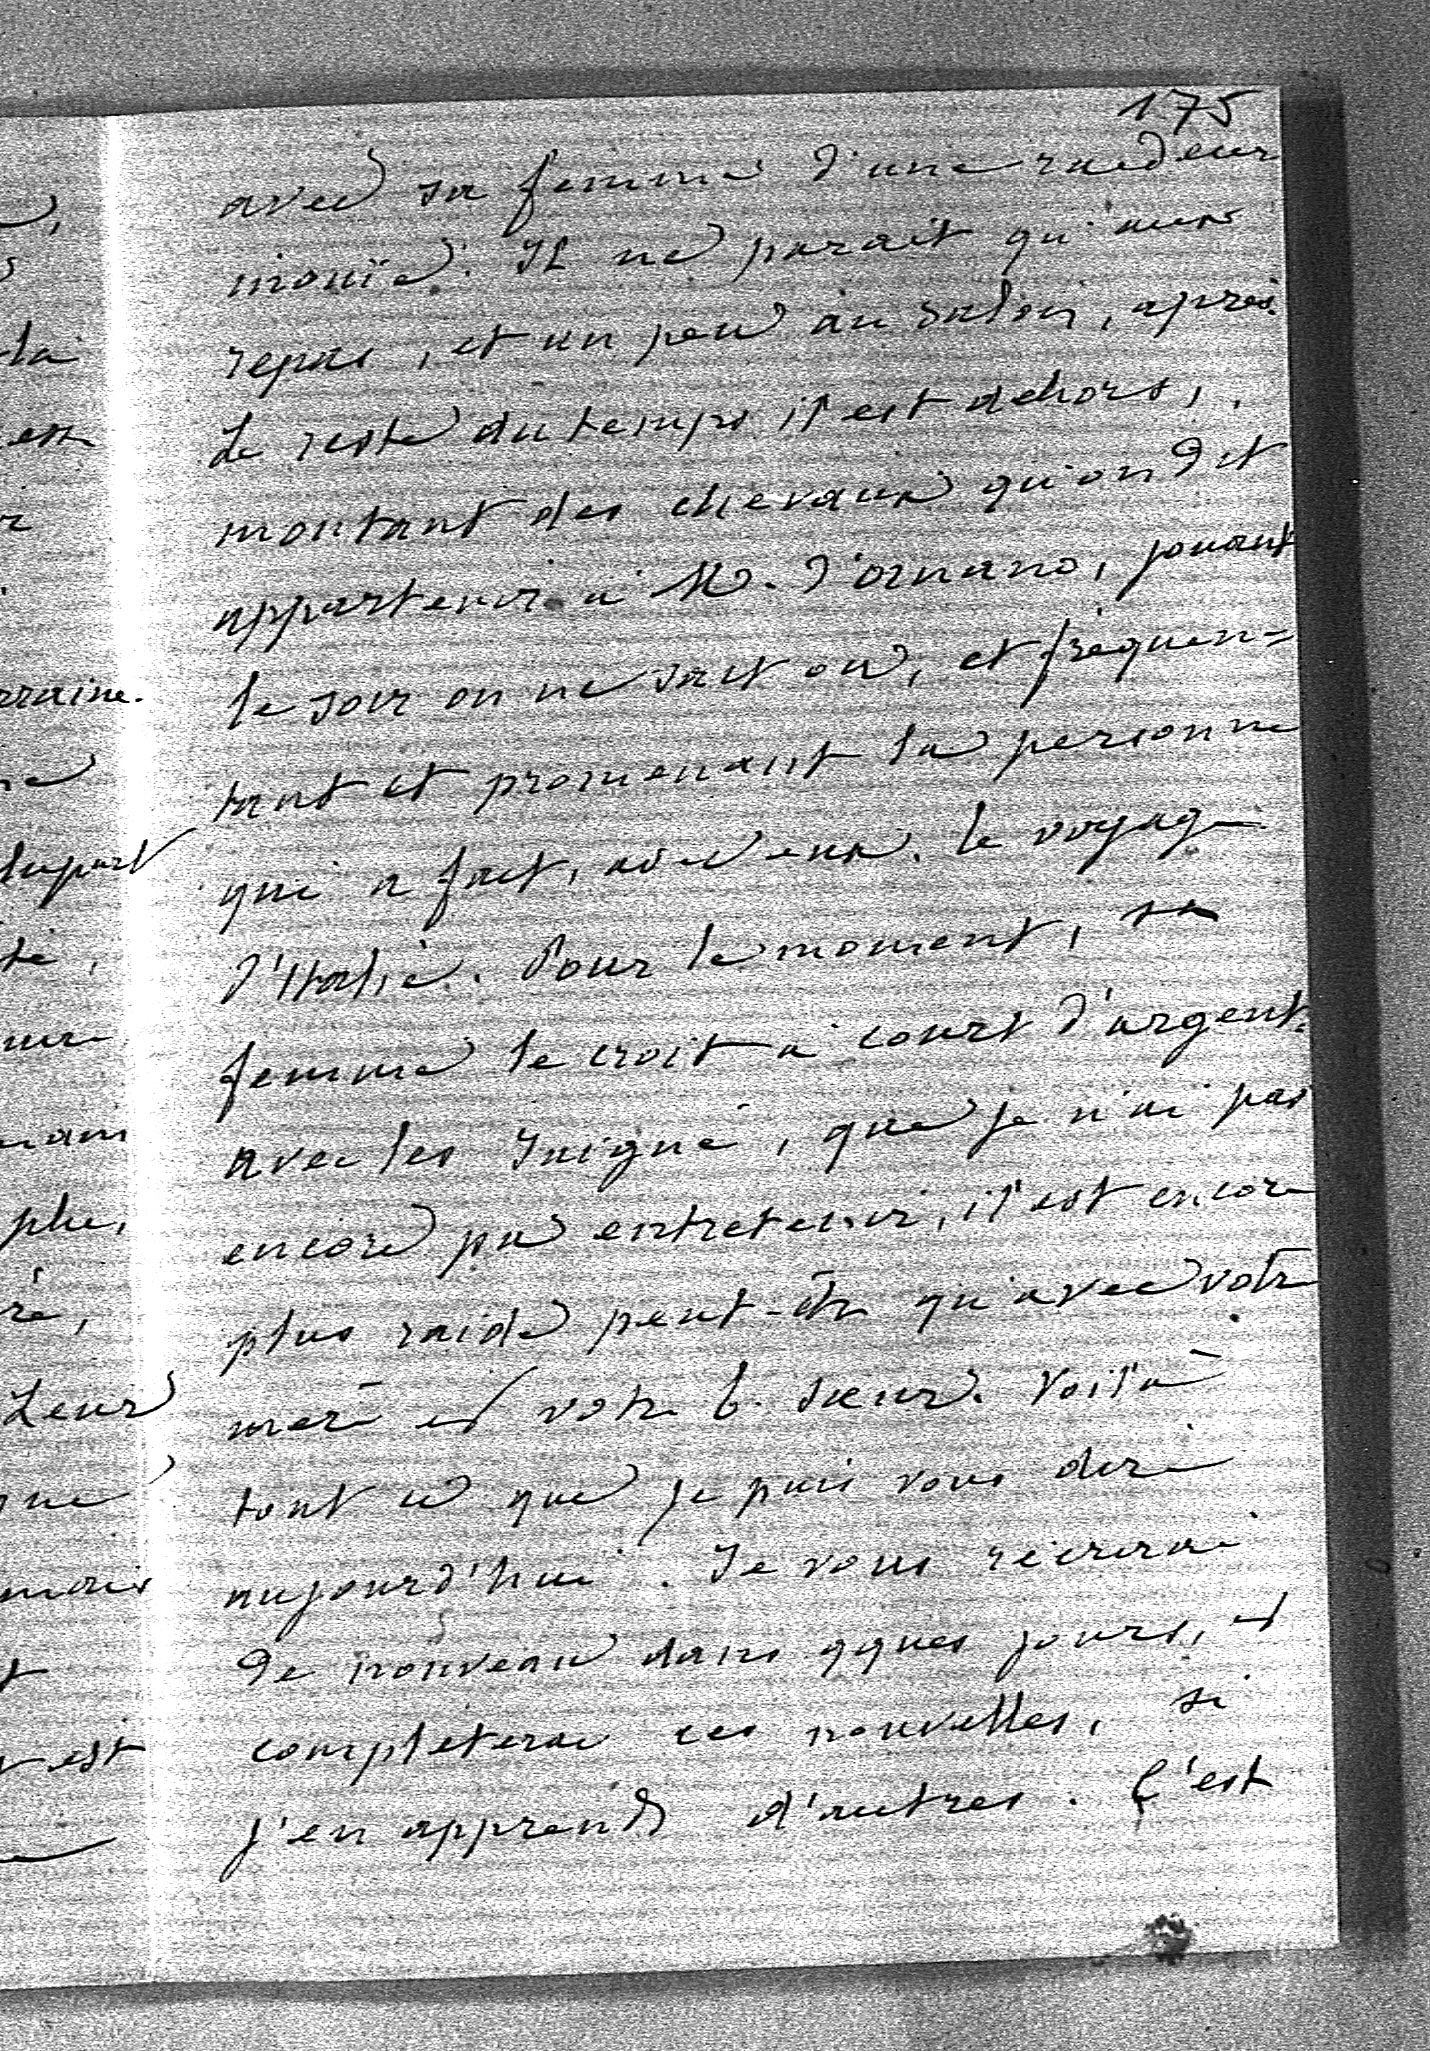 175
avec sa femme d'une raideur
inouïe. Il ne parait qu'aux
repas, et un peu au salon, après.
Le reste du temps il est dehors,
montant des chevaux qu'on dit
appartenir à M. d'Ornano, jouant
le soir on ne sait où, et fréquen=
tant et promenant la personne
qui a fait, avec eux, le voyage
d'Italie. Pour le moment, sa
femme le croit à court d'argent.
avec les Juigné, que je n'ai pas
encore pu entretenir, il est encore
plus raide peut-être qu'avec votre
mère et votre b. sœur. Voilà
tout ce que je puis vous dire
aujourd'hui. Je vous récrirai
de nouveau dans qques jours, et
complèterai ces nouvelles, si
j'en apprends d'autres. C'est
la
est
rraine.
Leur
mais
est